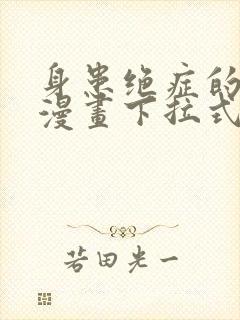 身患绝症的
漫畫下拉式
若田光一